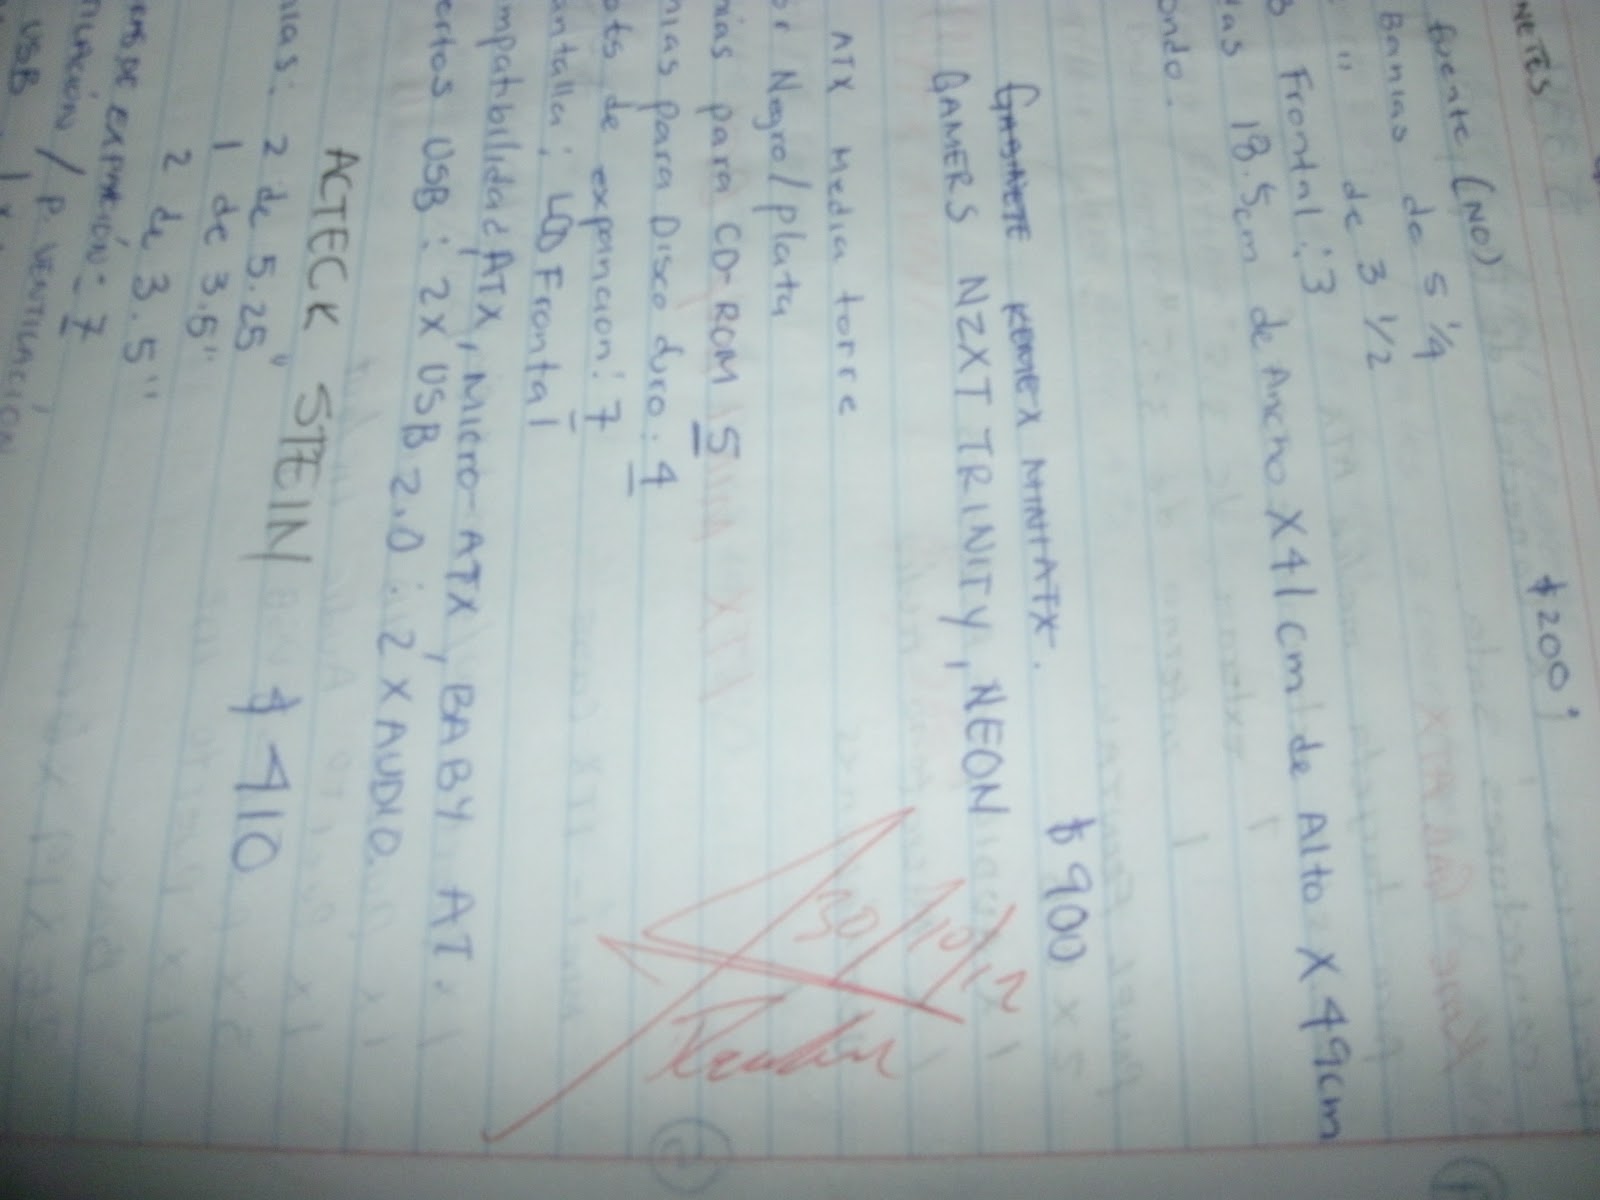 NETES $200
fuente (NO)
Bahias de 5 1/4
" de 3 1/2
B Frontal: 3
das 18.5cm de Ancho X 41cm de Alto X 49cm
ondo.
$900
GABINETE MINI ATX.
GAMERS NZXT TRINITY, NEON
30/10/12
ATX Media torre
or Negro/plata
hias para CD-ROM 5
hias para Disco duro: 4
ots de expancion: 7
antalla: LCD Frontal
mpatibilidad ATX, Micro-ATX, BABY AT.
ertos USB: 2X USB 2.0: 2 X AUDIO.
ACTECK STEIN $410
hias: 2 de 5.25"
1 de 3.5"
2 de 3.5"
DE EXPANSIÓN: 7
TILACIÓN / P. VENTILACIÓN
USB